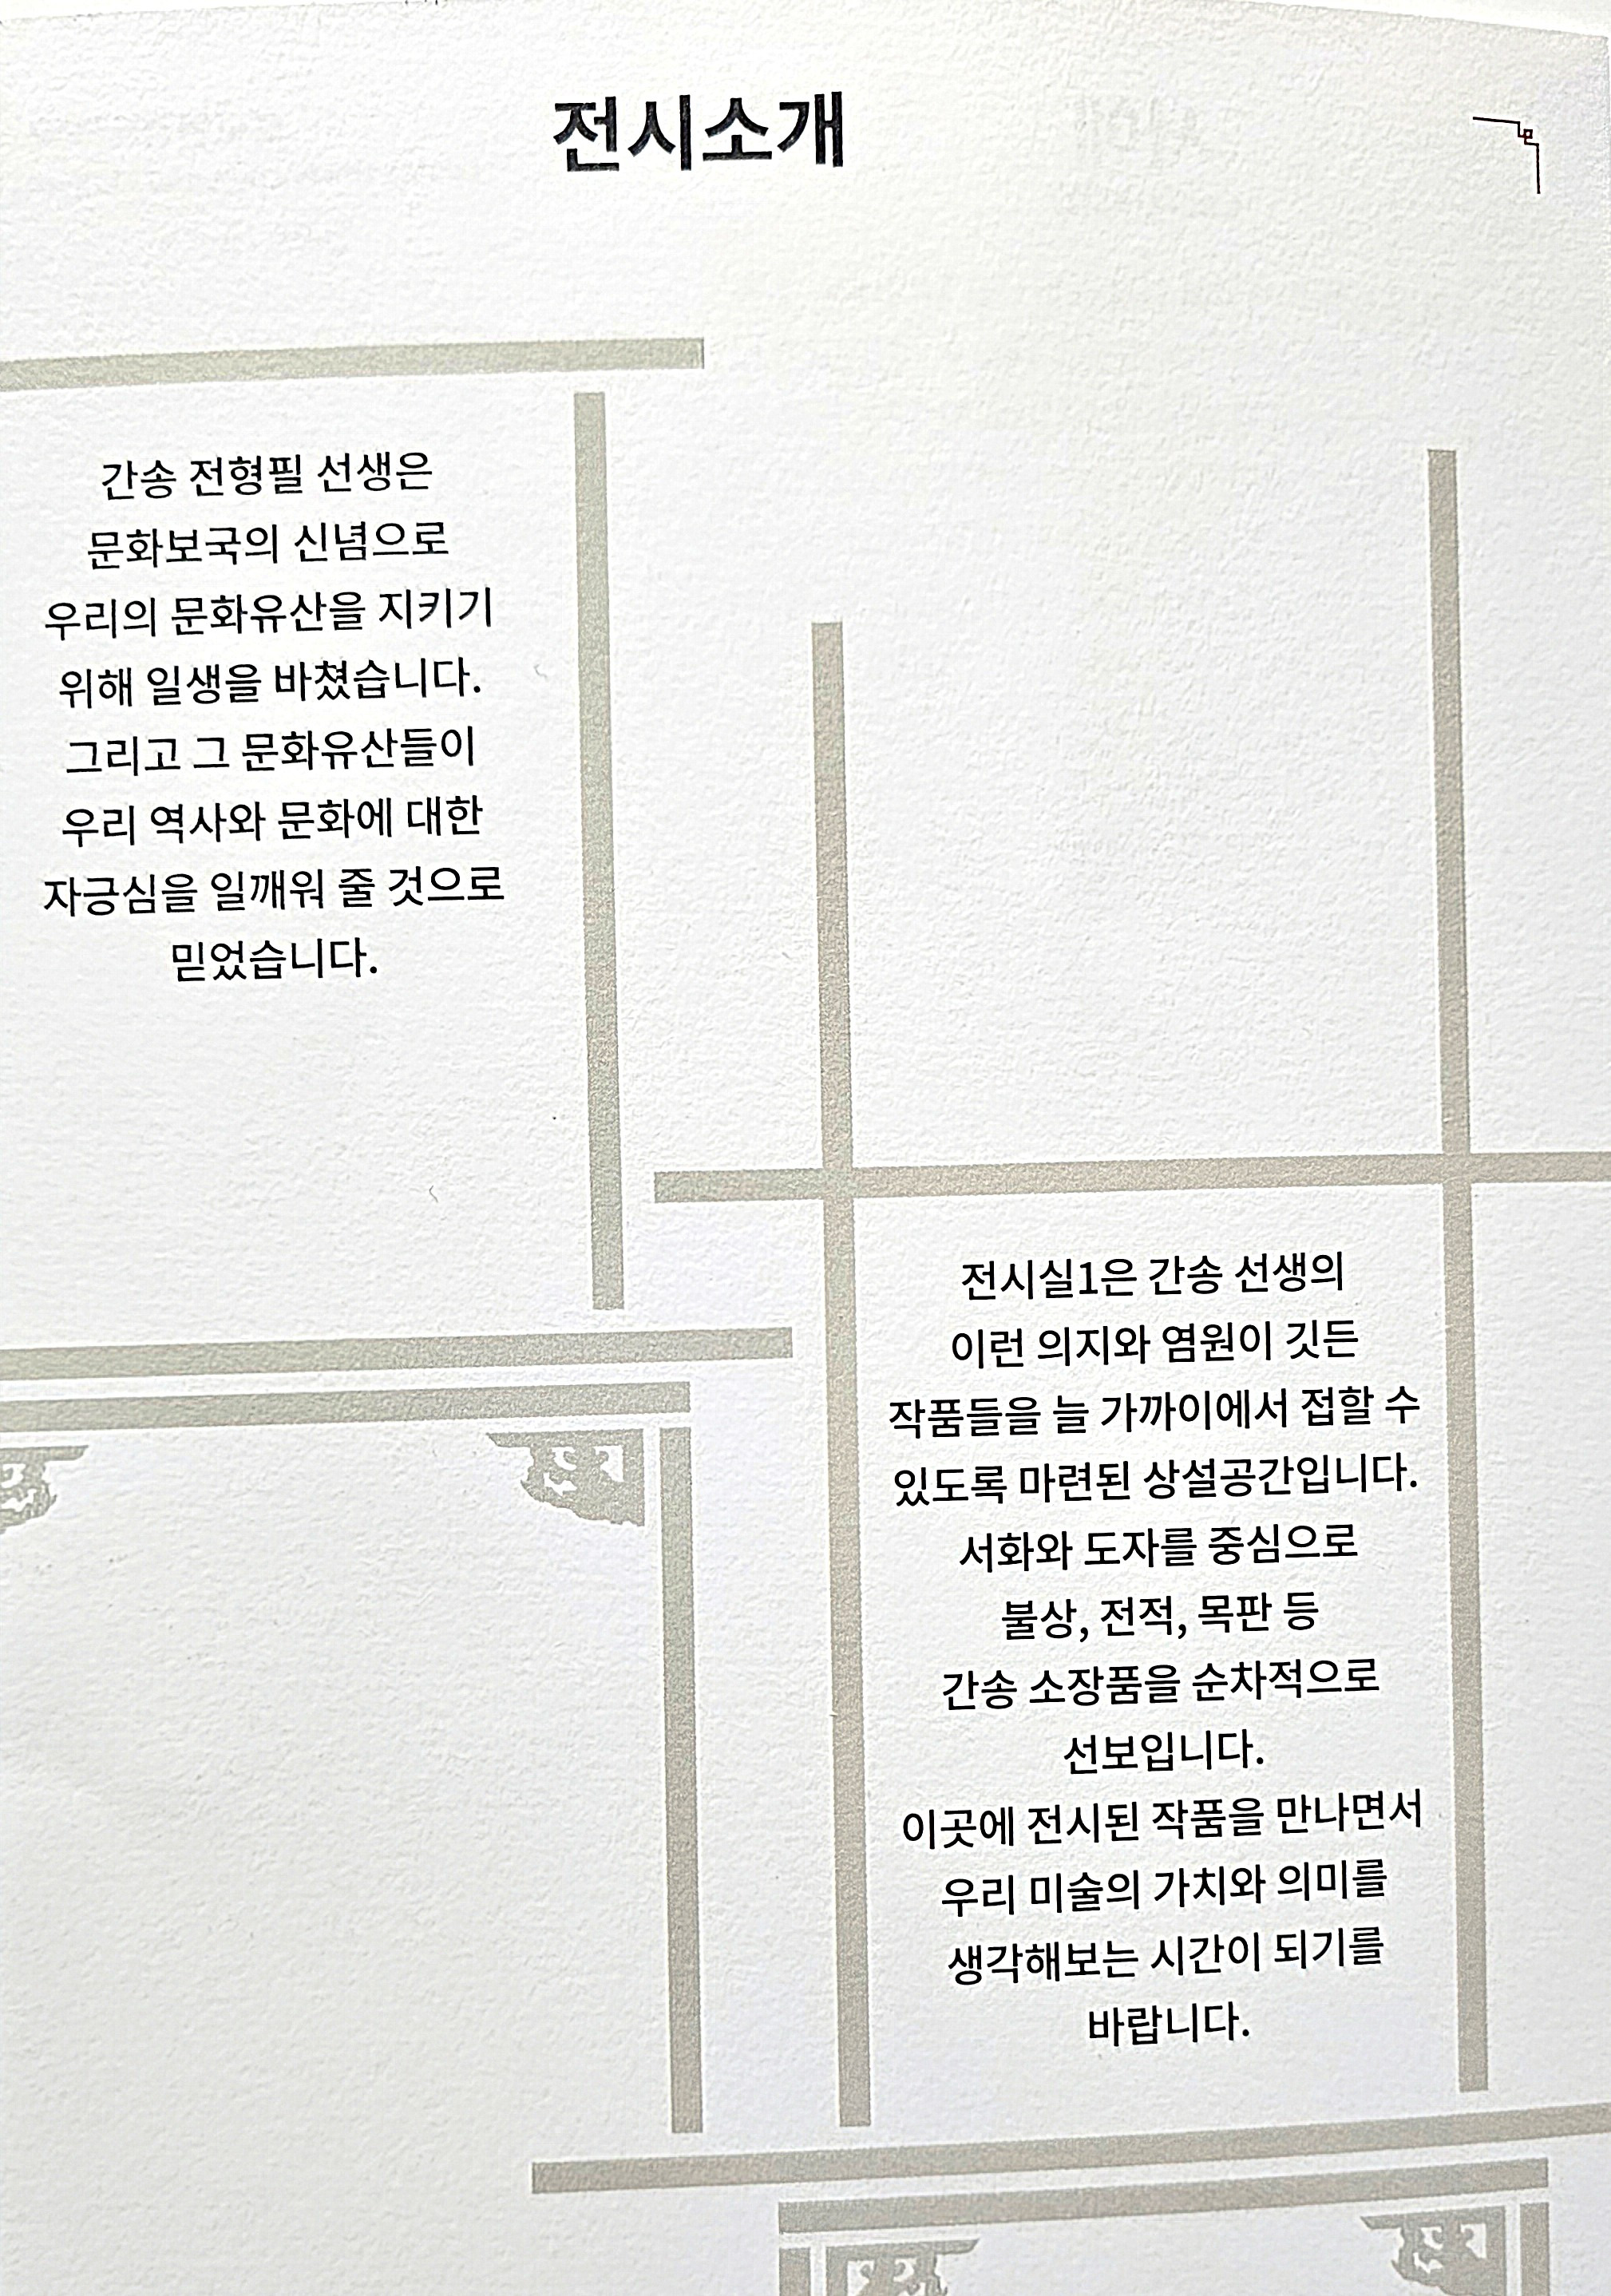 전시소개
간송 전형필 선생은
문화보국의 신념으로
우리의 문화유산을 지키기
위해 일생을 바쳤습니다.
그리고 그 문화유산들이
우리 역사와 문화에 대한
자긍심을 일깨워 줄 것으로
믿었습니다.
전시실1은 간송 선생의
이런 의지와 염원이 깃든
작품들을 늘 가까이에서 접할 수
있도록 마련된 상설공간입니다.
서화와 도자를 중심으로
불상, 전적, 목판 등
간송 소장품을 순차적으로
선보입니다.
이곳에 전시된 작품을 만나면서
우리 미술의 가치와 의미를
생각해보는 시간이 되기를
바랍니다.